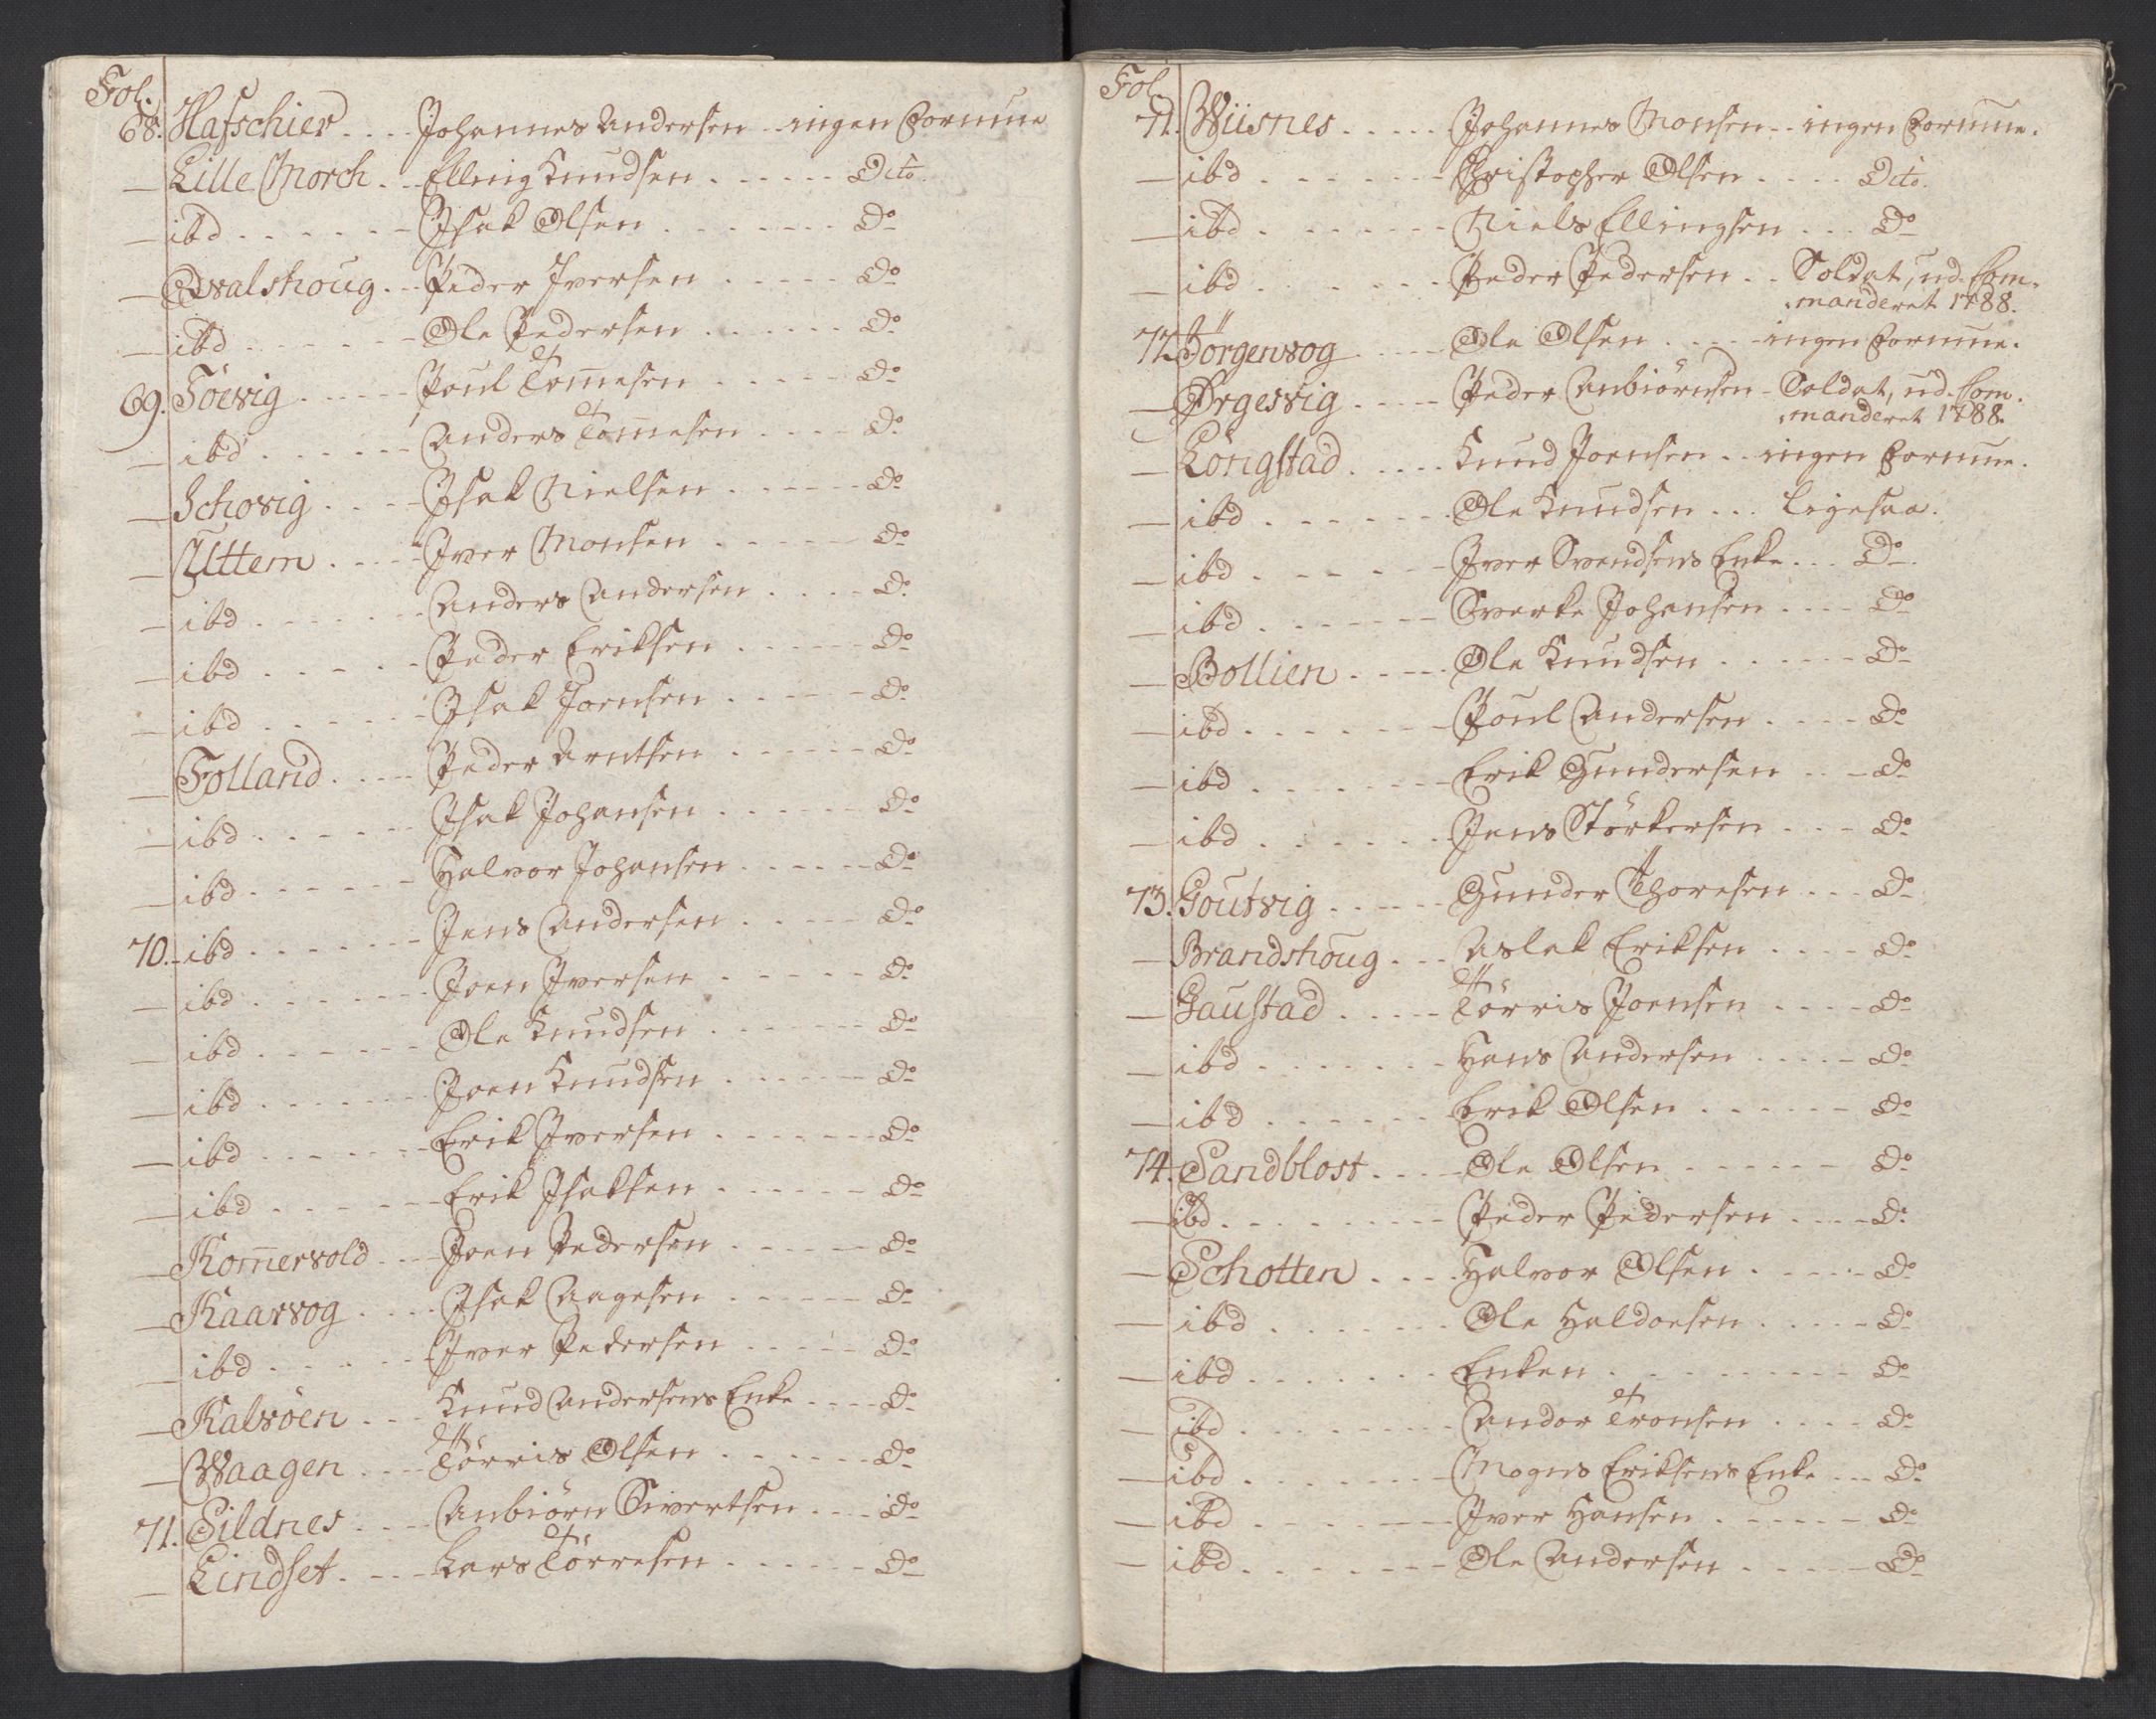 Fol.
68. Hafschier .... Johannes Andersen .. ingen Formue
— Lille Morch .. Elling Knudsen ...... Dito.
— ibd ...... Isak Olsen ....... Do
— Qvalshoug .. Peder Iversen ..... Do
— ibd ...... Ole Pedersen ...... Do
69. Töevig ..... Poul Tom̅esen ..... Do
— ibd ...... Anders Tom̅esen .... Do
— Schovig .... Isak Nielsen ...... Do
— Uttem .... Iver Monsen ..... Do
— ibd ...... Anders Andersen .... Do
— ibd ..... Peder Eriksen ...... Do
— ibd ...... Isak Joensen ..... Do
— Folland .... Peder Arntsen ...... Do
— ibd ...... Isak Johansen ...... Do
— ibd ...... Halvor Johansen ...... Do
70. - ibd ...... Jens Andersen ..... Do
— ibd ...... Joen Iversen ..... Do
— ibd ...... Ole Knudsen ...... Do
— ibd ...... Joen Knudsen ...... Do
— ibd ...... Erik Iversen ...... Do
— ibd ...... Erik Isaksen ...... Do
— Kom̅ervold ... Joen Pedersen ..... Do
— Kaarvog .... Isak Aagesen ..... Do
— ibd ...... Iver Pedersen ..... Do
— Kalvöen ... Knud Andersens Enke .... Do
— Waagen .... Törris Olsen ...... Do
71. Sildnes .... Anbiörn Sivertsen ... Do
— Lindset .... Lars Törresen ..... Do
Fol.
71. Wiisnes ..... Johannes Monsen .. ingen Formue.
— ibd ...... Christopher Olsen .... Dito.
— ibd ...... Niels Ellingsen ... Do
— ibd ...... Peder Pedersen .. Soldat, ud-Com-
manderet 1788.
72. Jörgenvog .... Ole Olsen .... ingen Formue.
— Ørgesvig .... Peder Anbiörnsen - Soldat, ud-Com-
manderet 1788.
— Löngstad ..... Knud Joensen .. ingen Formue.
— ibd ...... Ole Knudsen ... ligesaa.
— ibd ...... Iver Svendsens Enke ... Do
— ibd ...... Sverke Johansen .... Do
— Bollien .... Ole Knudsen ..... Do
— ibd ...... Poul Andersen .... Do
— ibd ...... Erik Gundersen ... Do
— ibd ...... Jens Störkersen ... Do
73. Goutvig ..... Gunder Thoresen ... Do
— Brandshoug ... Aslak Eriksen .... Do
— Gaustad ..... Törris Joensen .... Do
— ibd ...... Hans Andersen .... Do
— ibd ...... Erik Olsen ...... Do
74. Sandblost .... Ole Olsen ...... Do
— ibd ....... Peder Pedersen .... Do
— Schotten .... Halvor Olsen ..... Do
— ibd ...... Ole Haldoesen ..... Do
— ibd ...... Enken ........ Do
— ibd ...... Andor Tronsen .... Do
— ibd ...... Mogns Eriksens Enke ... Do
— ibd ...... Iver Hansen ..... Do
— ibd ...... Ole Andersen ..... Do